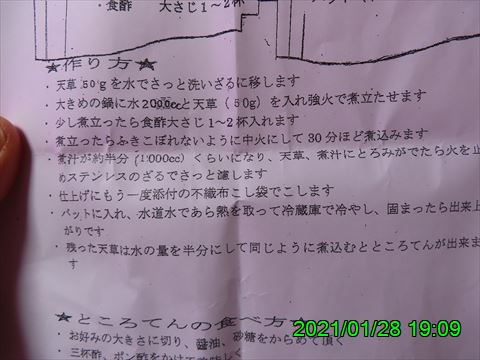 ・食酢　大さじ1～2杯
★作り方★
・天草50gを水でさっと洗いざるに移します
・大きめの鍋に水2000ccと天草（50g）を入れ強火で煮立たせます
・少し煮立ったら食酢大さじ1～2杯入れます
煮立ったらふきこぼれないように中火にして30分ほど煮込みます
・煮汁が約半分（1000cc）くらいになり、天草、煮汁にとろみがでたら火を止
めステンレスのざるでさっと濾します
・仕上げにもう一度添付の不織布こし袋でこします
・バットに入れ、水道水であら熱を取って冷蔵庫で冷やし、固まったら出来上
がりです
・残った天草は水の量を半分にして同じように煮込むとところてんが出来ま
す
★ところてんの食べ方☆
・お好みの大きさに切り、醤油、砂糖をからめて頂く
・三杯酢、ポン酢をかけて
2021/01/28 19:09